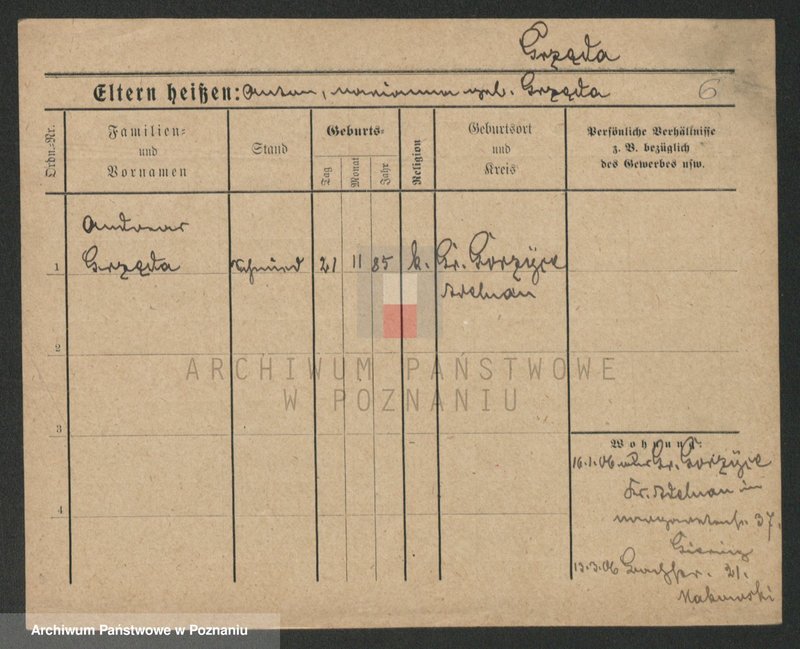 Grzęda
Eltern heißen: Anton, Marianna geb. Grzęda
6
Ordn.-Nr.
Familien-
und
Vornamen
Stand
Geburts-
Tag
Monat
Jahr
Religion
Geburtsort
und
Kreis
Persönliche Verhältnisse
z. B. bezüglich
des Gewerbes usw.
Andreas
1 Grzęda Schmied 21 11 85 k. Gr. Gorzyce
Adelnau
2
3
4
Wohnung:
16.1.06 Gr. Gorzyce
Kr. Adelnau in
Margaretenstr. 37.
13.3.06 Bachstr. 21.
Makowski
ARCHIWUM PAŃSTWOWE
W POZNANIU
Archiwum Państwowe w Poznaniu